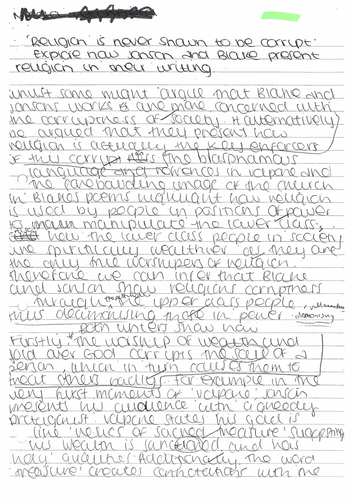 'Religion is never shown to be corrupt'
Explore how Jonson and Blake present
religion in their writing.
Whilst some might argue that Blake and
Jonsons works are more concerned with
the corruptness of society. It alternatively
be argued that they present how
religion is actually the key enforcer
of this corrupt the blasphamous
language and references in volpone and
the foreboding image of the church
in Blakes poems highlight how religion
is used by people in positions of power
to manipulate the lower class;
how the lower class people in society
are spiritually wealthier as they are
the only true worshipers of religion.
therefore we can infer that Blake
and Jonson show religions corruptness
through the upper class people,
thus those in power
both writers show how
Firstly, the worship of wealth and
gold over God corrupts the soul of a
person, which in turn causes them to
treat others badly. For example in the
very first moments of 'volpone' Jonson
presents his audience with a greedy
protagonist. Volpone states his gold is
like 'relics of sacred treasure' suggesting
his wealth is sanctified and has
'holy' qualities. Additionally the word
'treasure' creates connotations with the